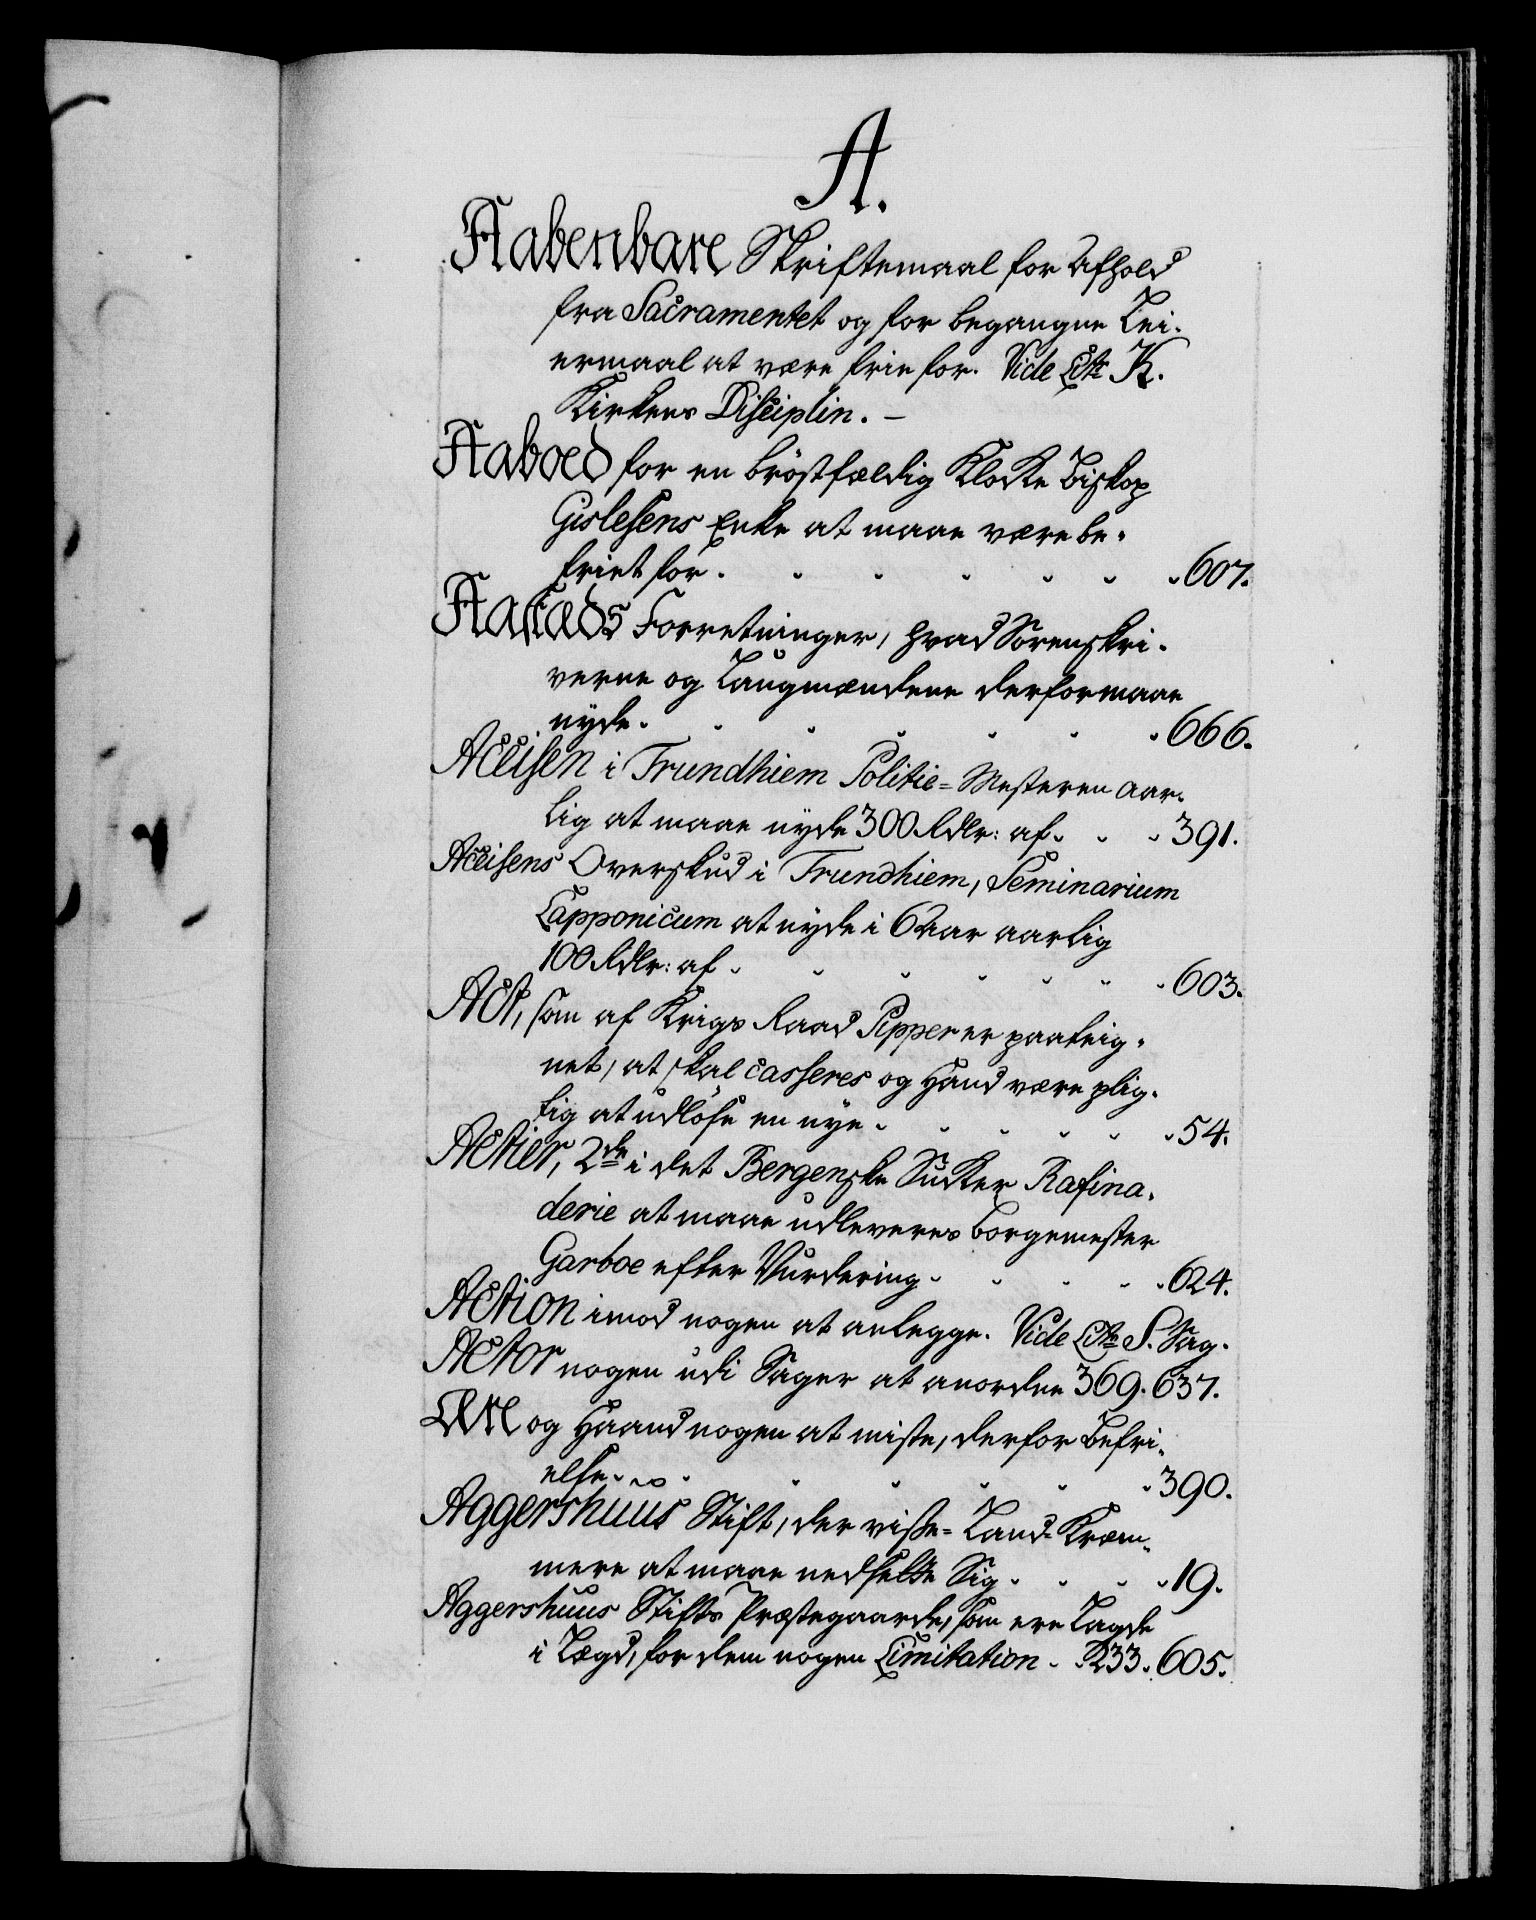 A.
Aabenbare Skriftemaal for Afhold
fra Sacramentet og for begangne Lei-
ermaal at være frie for. Vide Litr K.
Kirkens Disciplin. –
Aaboed for en brøstfældig Klocke Biskop
Gislesens Enke at maae være be-
friet for. 607.
Aasæds Forretninger, hvad Sorenskri-
verne og Laugmændene derfor maae
nyde. 666.
Accisen i Trundhiem Politie-Mesteren aar-
lig at maae nyde 300 Rdlr: af 391.
Accisens Overskud i Trundhiem, Seminarium
Lapponicum at nyde i 6 aar aarlig
100 Rdlr: af 603.
Act, som af Krigs Raad Pipper er paateig-
net, at skal casseres og Hand være plig-
tig at udløse en nye 54.
Actier, 2de i det Bergenske Sucker Rafina-
derie at maae udleveres Borgemester
Garboe efter Vurdering 624.
Action imod nogen at anlegge. Vide Litr S. Sag.
Actor nogen udi Sager at anordne 369. 637.
Ære og Haand nogen at miste, derfor Befri-
else. 390.
Aggershuus Stift, der visse Land-Kræm-
mere at maae nedsette Sig 19.
Aggershuus Stifts Præstegaarde, som ere Lagde
i Lægd, for dem nogen Limitation 233. 605.